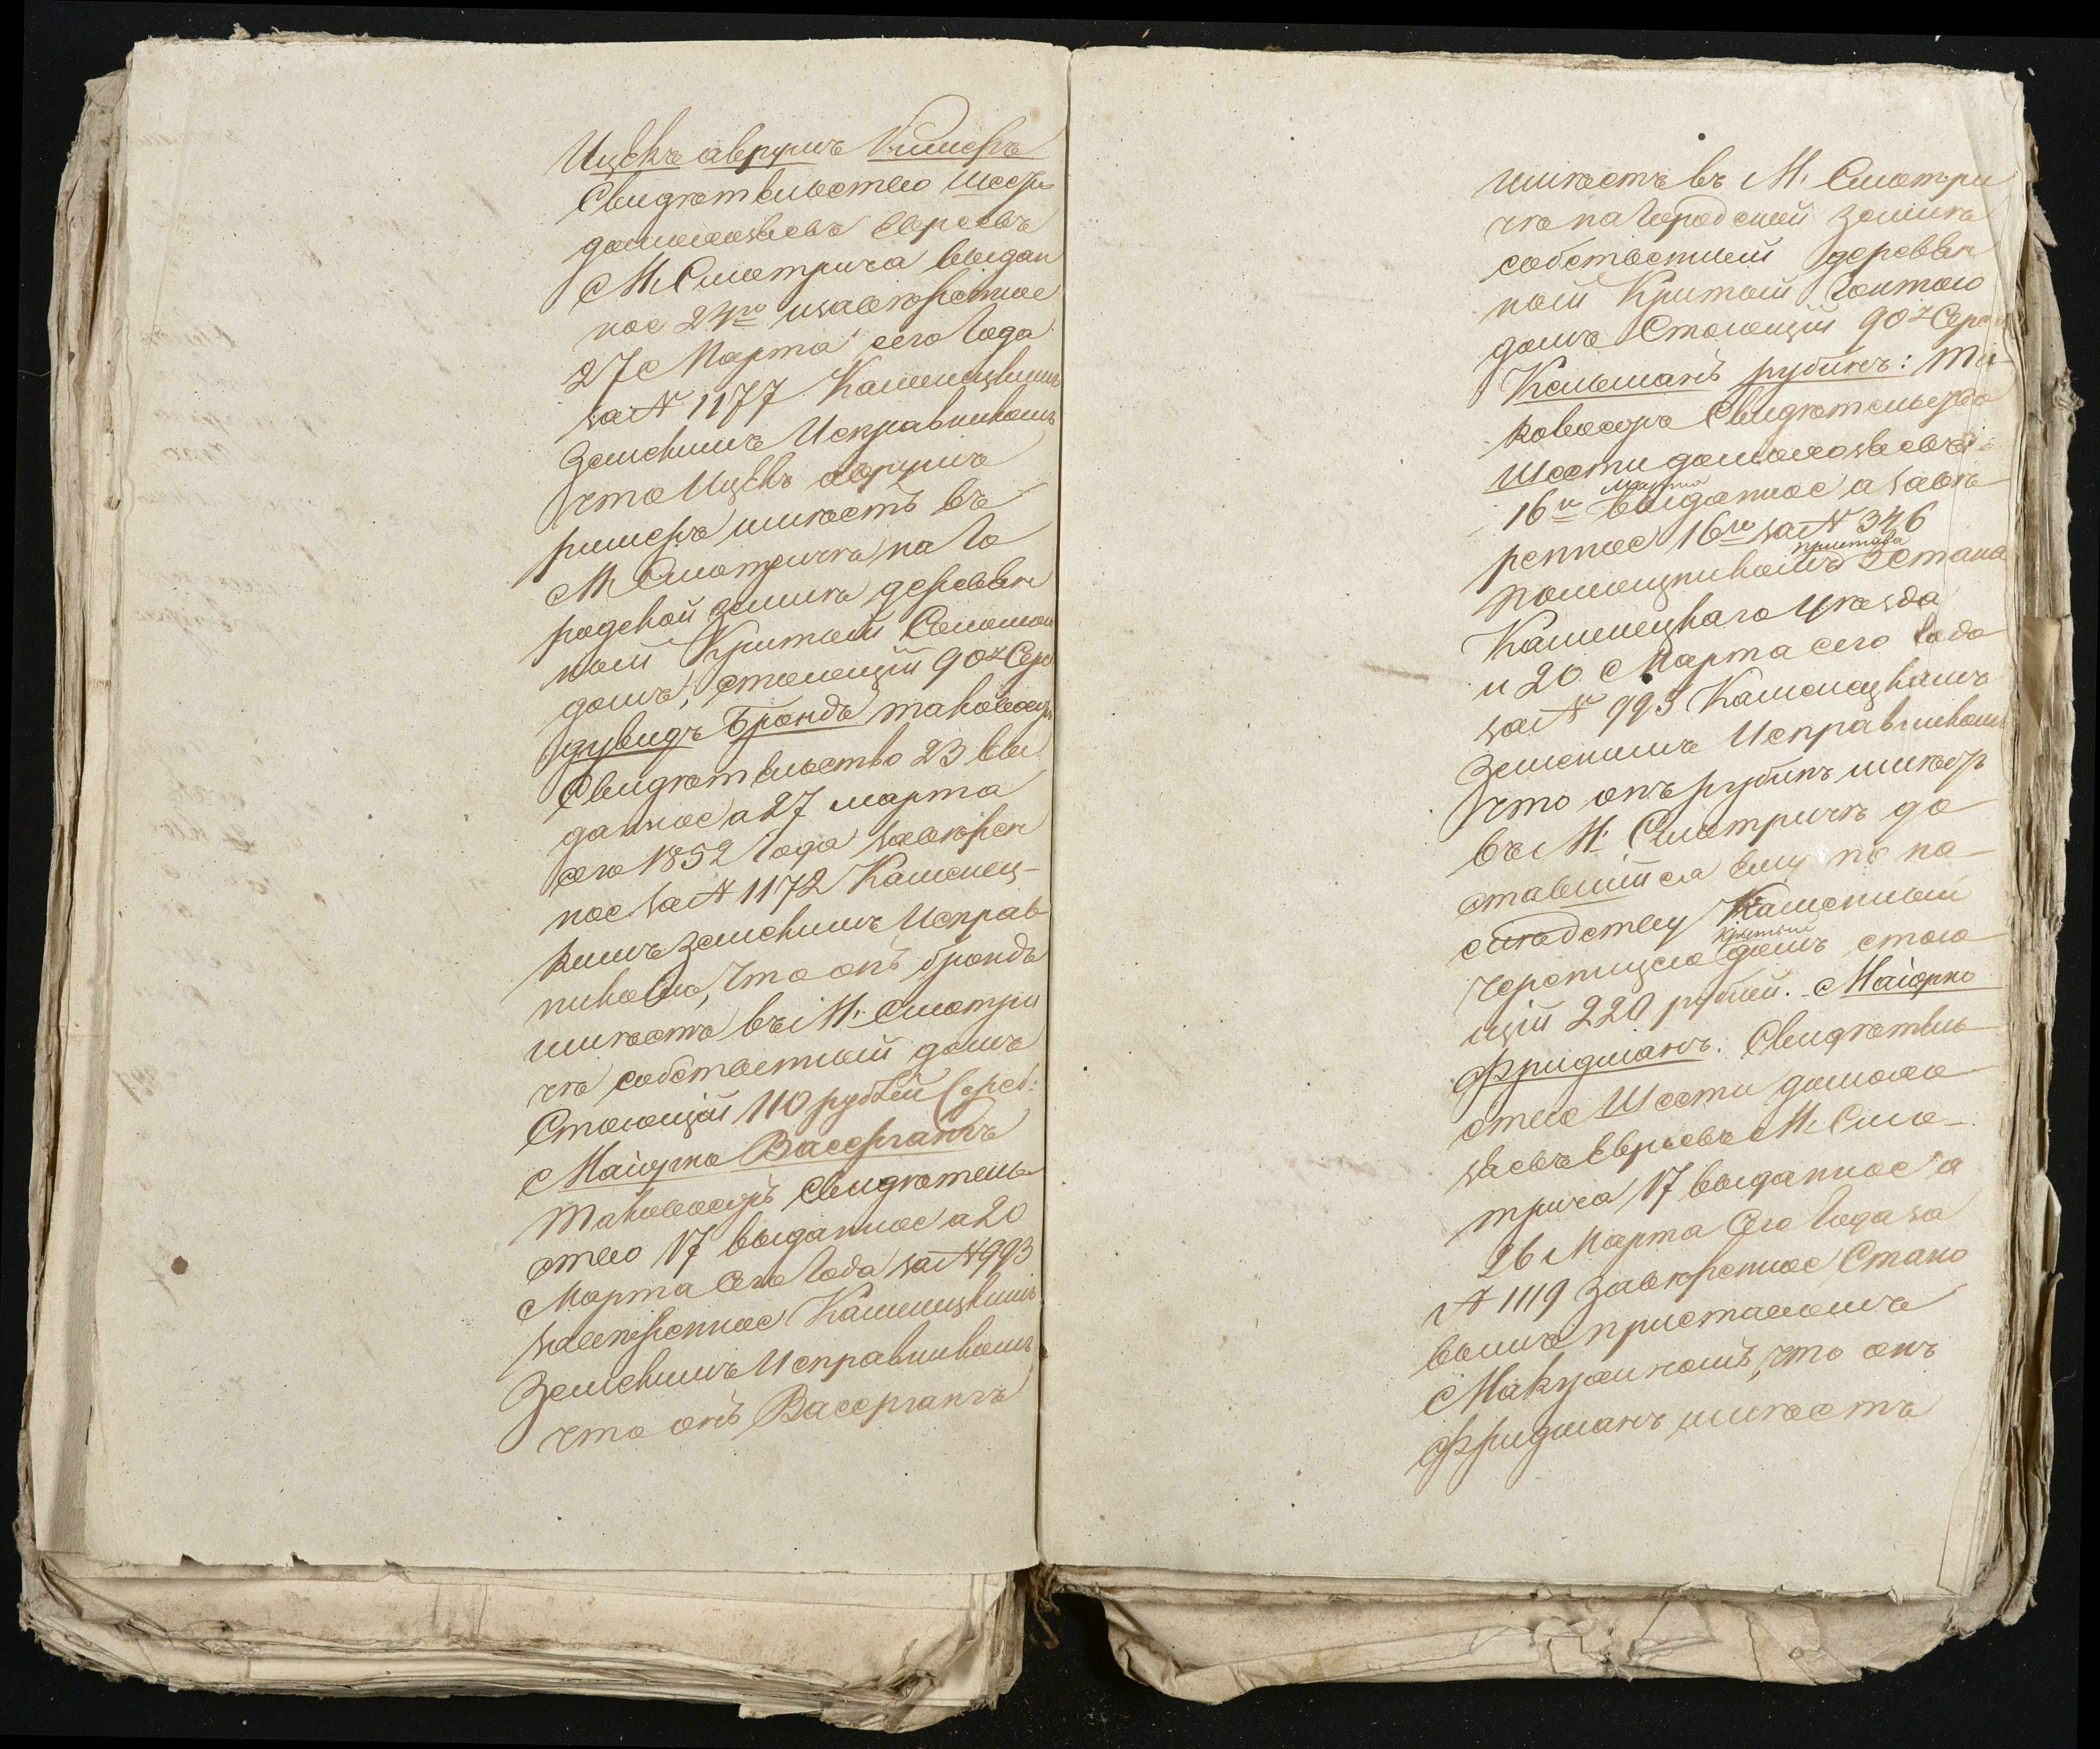 Ицекъ аврумъ Кимеръ
Свидетельство шести
домохозяевъ Евреевъ
М. Смотрича выдан
ное 24го изаверенное
27 Марта сего года
за № 1177 Каменецкимъ
Земскимъ Исправникомъ
что Ицекъ аврумъ
римеръ имеетъ въ
М Смотриче на го
родской земле деревян
ной Критый Соломой
домъ, стоющій 90 Сер
дувидъ Брондъ таковоежъ
Свидетельство 23 вы
данное а 27 марта
сего 1852 года заверен
ное за № 1172 Каменец-
кимъ земскимъ Исправ
никомъ, что онъ брондъ
имеетъ въ М. Смотри
че собственный домъ
Стоющій 110 рублей Сереб:
Маіорко Вассерганъ
таковоежъ свидетель
ство 17 выданное а 20
Марта сего года за № 993
заверенное Каменецкимъ
Земскимъ Исправникомъ
что онъ Вассерганъ
имеетъ въ М. Смотри
че на городской земле
собственный деревян
ной Критый Гонтою
домъ Стоющій 90 Сереб
Кельманъ рубинъ: та
ковоежъ Свидетельство
шести домохозяевъ
16го Марта выданное а заве
ренное 16го за № 346
помощникомъ пристава 2 стана
Каменецкаго Уезда
и 20 Марта сего года
за № 995 Каменецкимъ
Земскимъ Исправникомъ
что онъ рубинъ имеетъ
въ М. Смотриче до
ставшійся ему по на
следству Каменный
черепицею крытый домъ стою
щій 220 рублей. Маіорко
Фридманъ: Свидетель
ство Шести домохо
зяевъ Евреевъ М. Смо-
трича 17 выданное а
26 Марта сего года за
№ 1119 заверенное Стано
вымъ приставомъ
что онъ
Фридманъ имеетъ